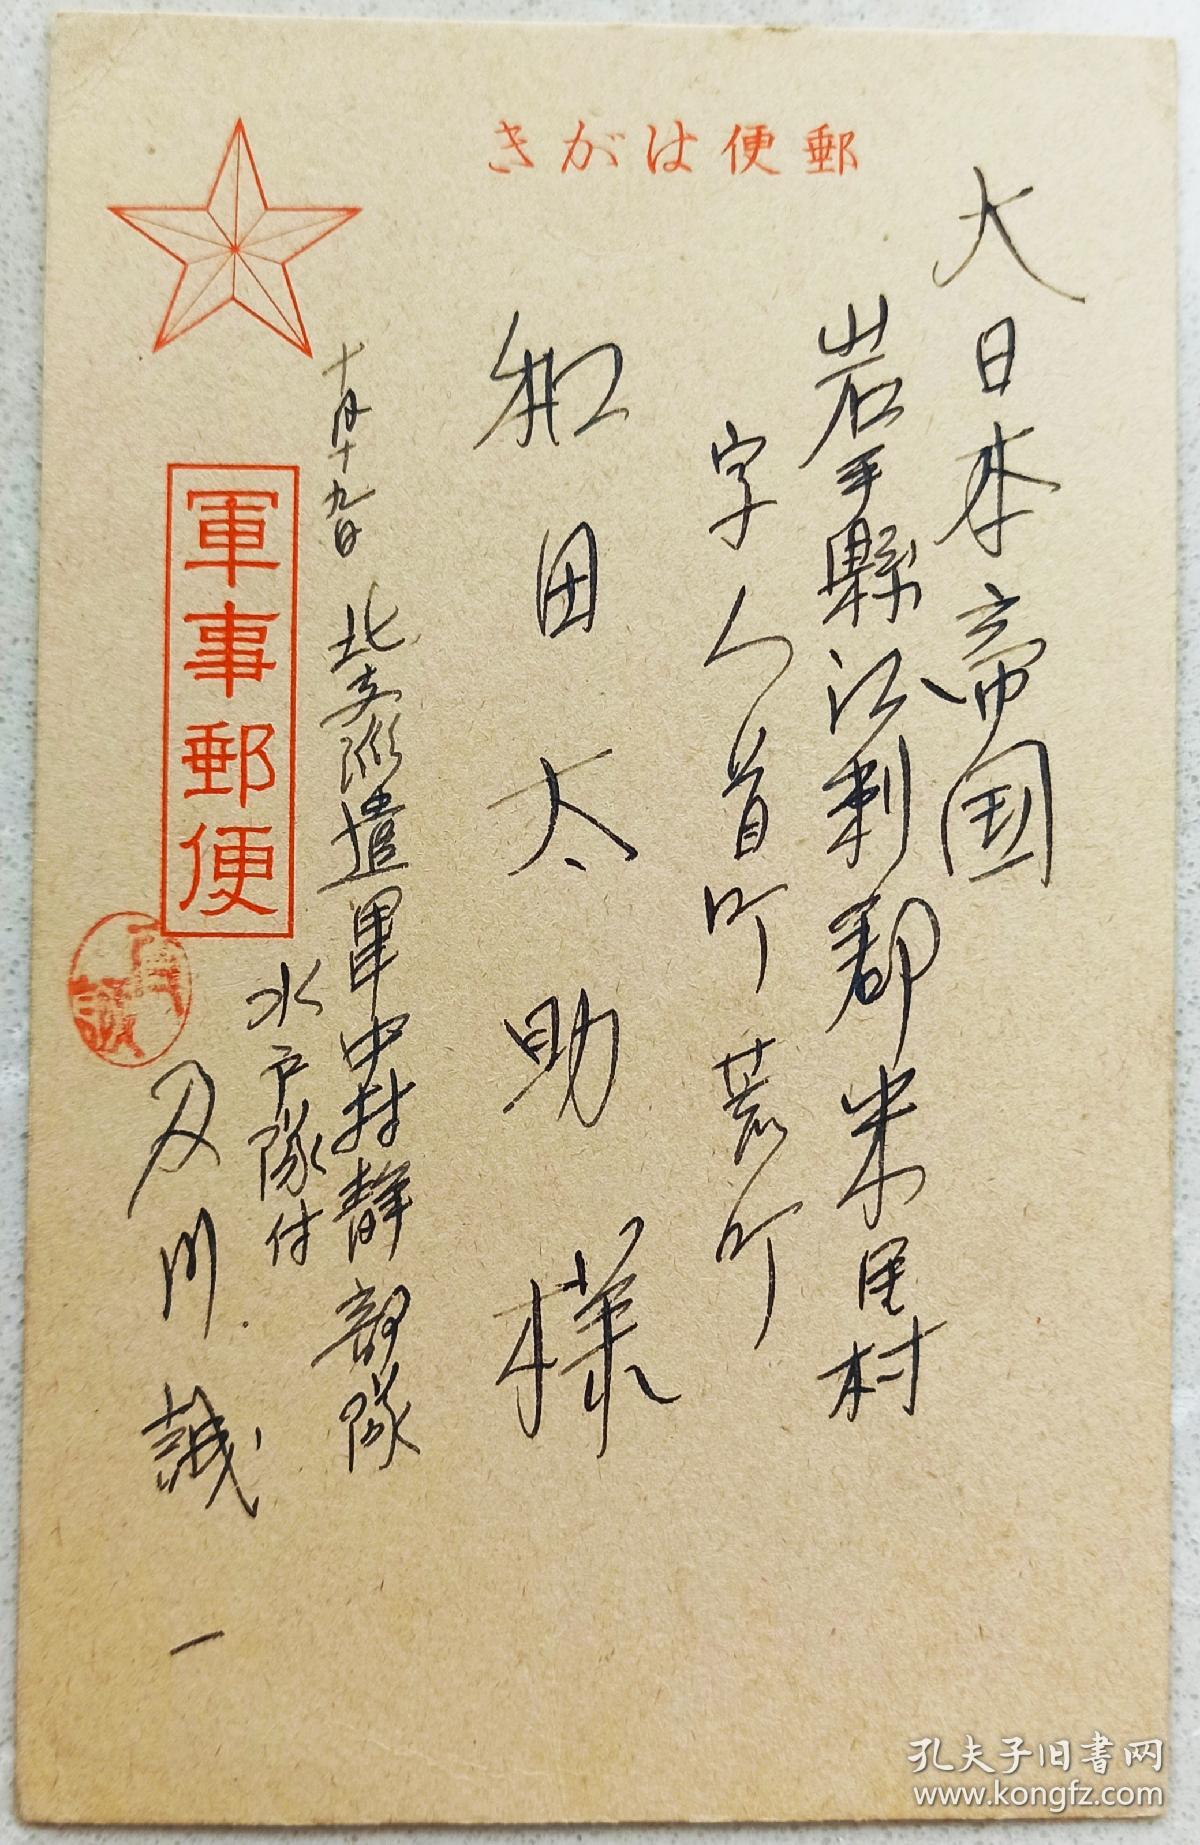 郵便はがき
大日本帝国
岩手縣江刺郡米里村
字人首町荒町
和田太助様
十月十九日
北支派遣軍中村静部隊
水戸隊付
及川誠一
軍事郵便
孔夫子旧书网
www.kongfz.com